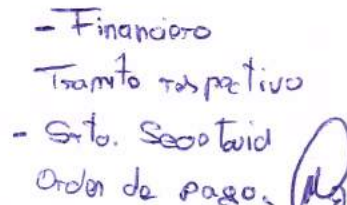 - Financiero
Tramite respectivo
- Srta. Secretaria
Orden de pago.